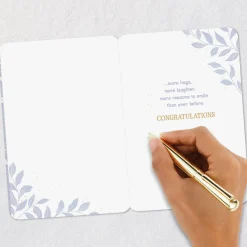 ...more hugs,
more laughter,
more reasons to smile
than ever before.
CONGRATULATIONS